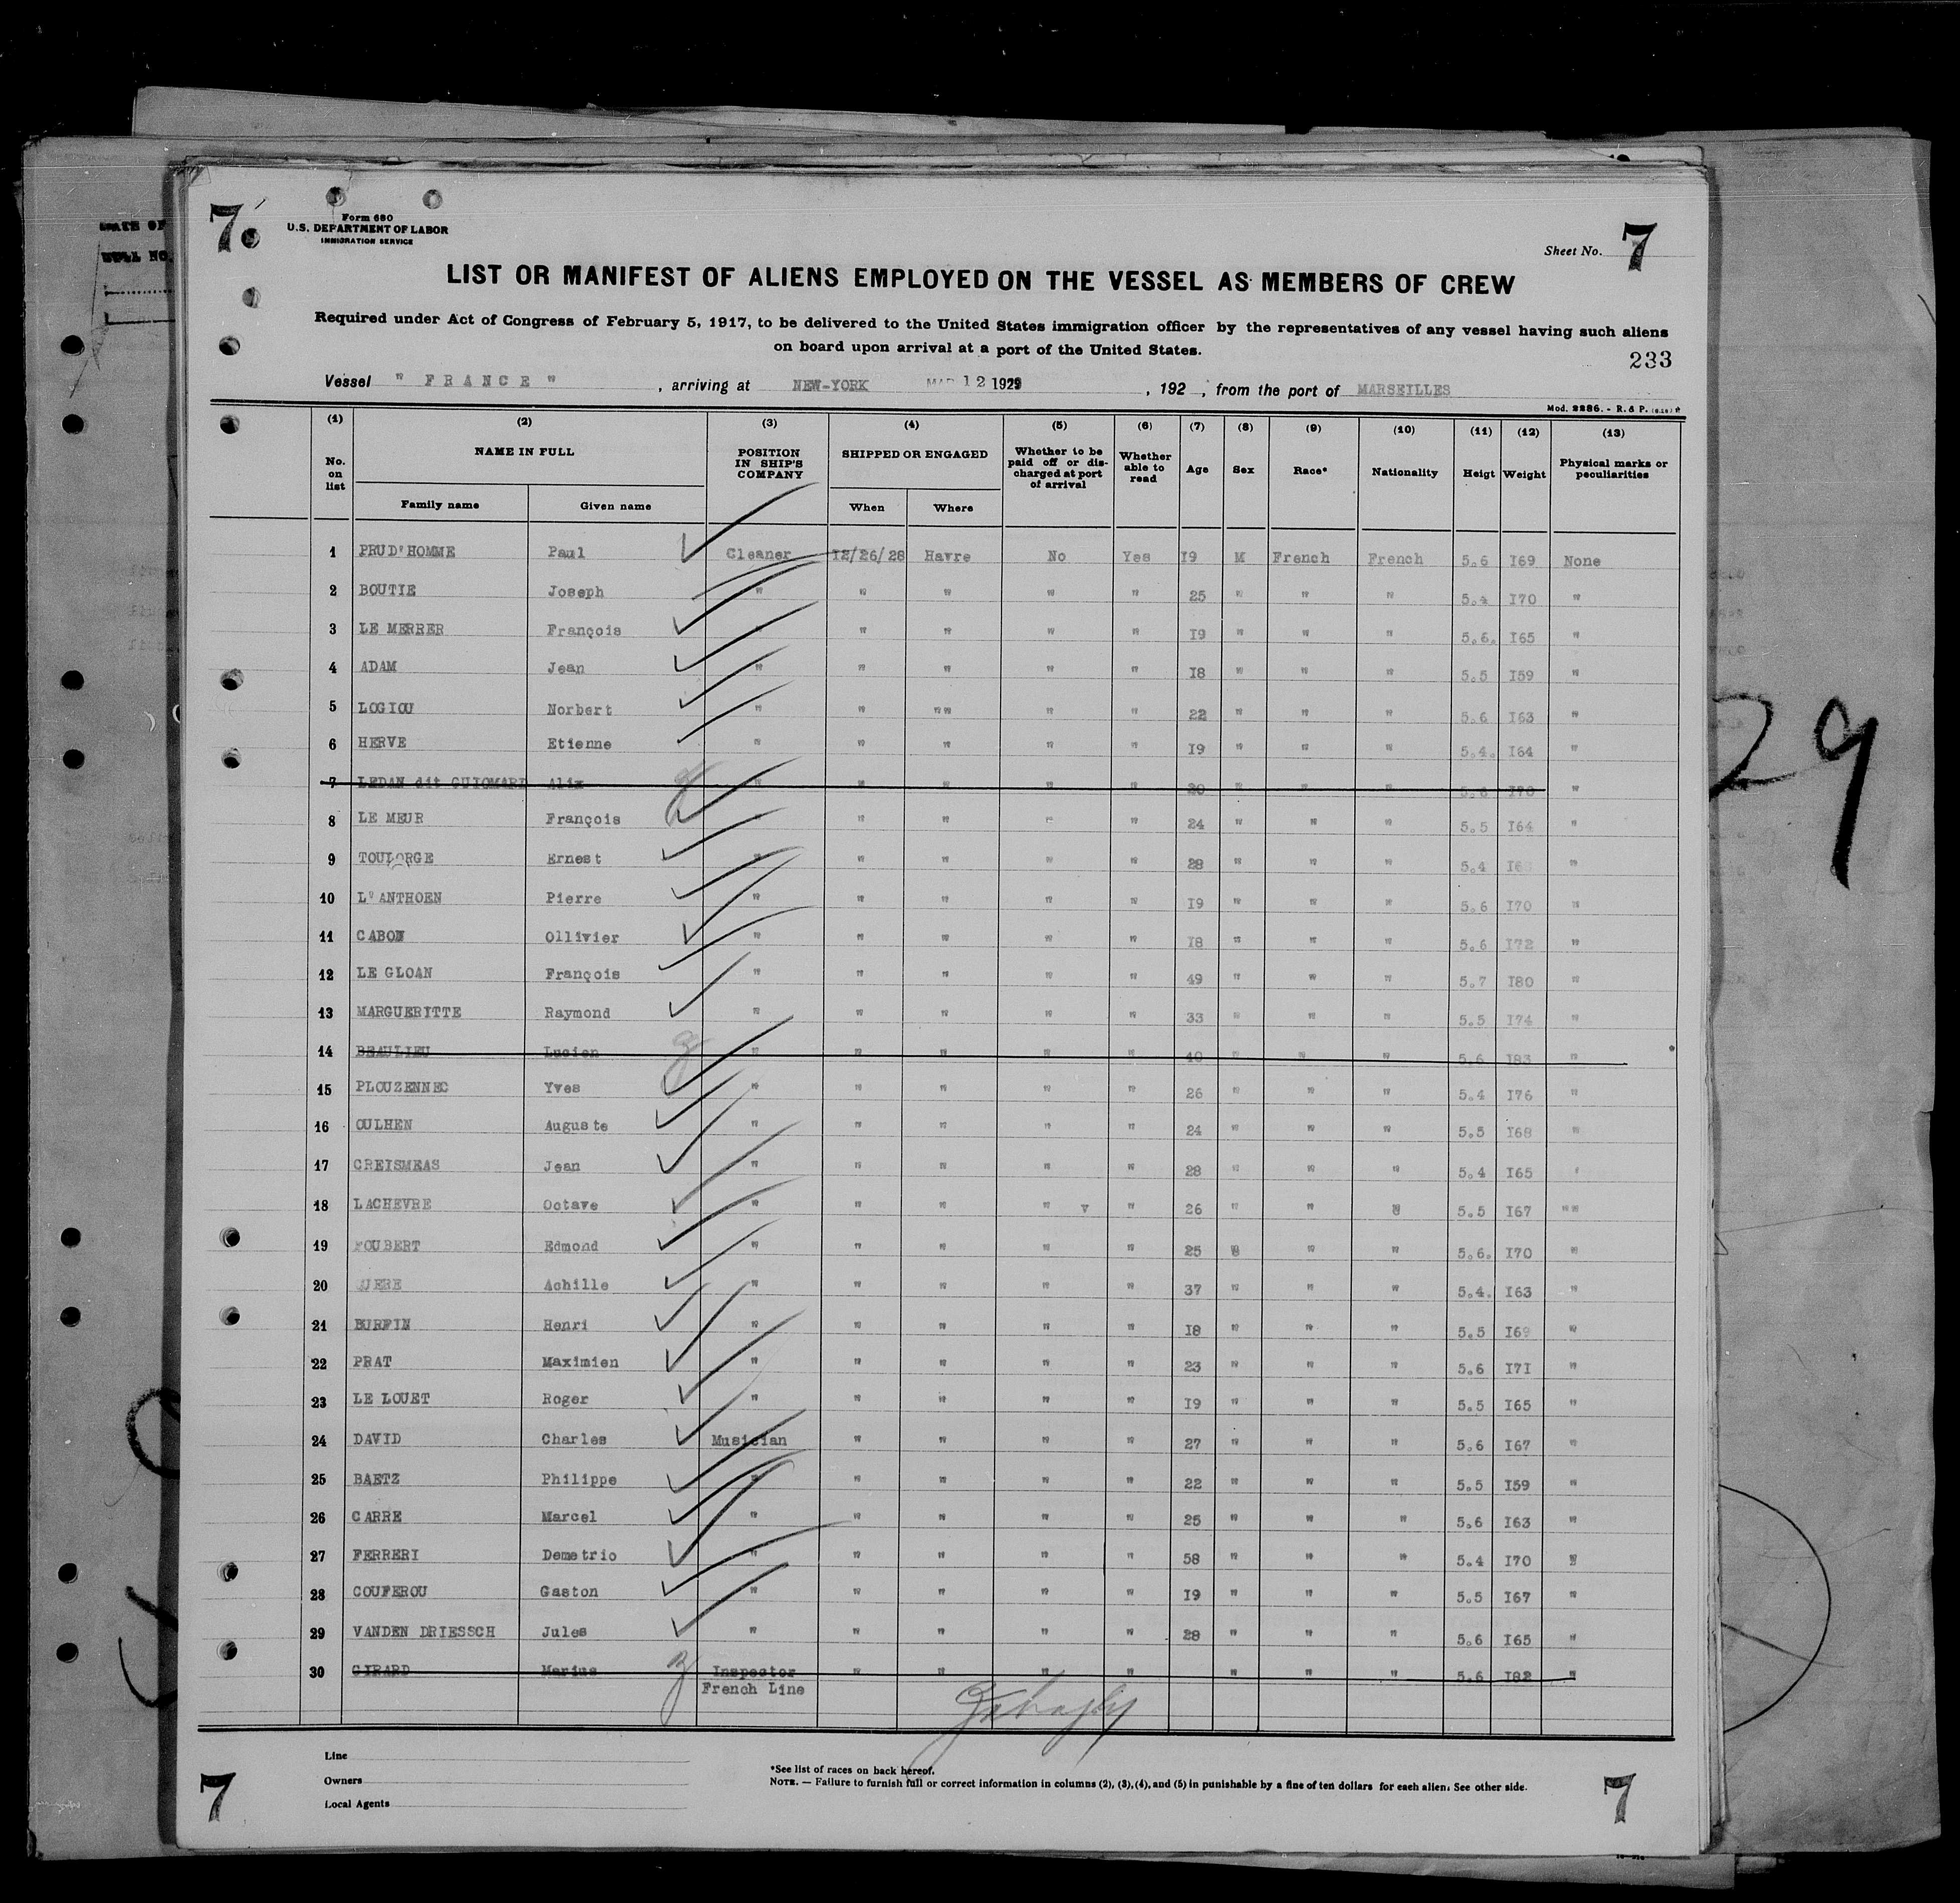 7
Form 680
U.S. DEPARTMENT OF LABOR
IMMIGRATION SERVICE
Sheet No. 7
LIST OR MANIFEST OF ALIENS EMPLOYED ON THE VESSEL AS MEMBERS OF CREW
Required under Act of Congress of February 5, 1917, to be delivered to the United States immigration officer by the representatives of any vessel having such aliens
on board upon arrival at a port of the United States.
233
Vessel " FRANCE " , arriving at NEW-YORK MAR 12 1929 , 192 , from the port of MARSEILLES
Mod. 2286. - R. & P.
(1) (2) (3) (4) (5) (6) (7) (8) (9) (10) (11) (12) (13)
No. on list NAME IN FULL POSITION IN SHIP'S COMPANY SHIPPED OR ENGAGED Whether to be paid off or discharged at port of arrival Whether able to read Age Sex Race* Nationality Heigt Weight Physical marks or peculiarities
Family name Given name When Where
1 PRUD'HOMME Paul Cleaner 12/26/28 Havre No Yes I9 M French French 5.6 I69 None
2 BOUTIE Joseph " " " " " 25 " " " 5.4 I70 "
3 LE MERRER François " " " " " I9 " " " 5.6. I65 "
4 ADAM Jean " " " " " I8 " " " 5.5 I59 "
5 LOGIOU Norbert " " "" " " 22 " " " 5.6 I63 "
6 HERVE Etienne " " " " " I9 " " " 5.4. I64 "
7 LEDAN dit GUIOMARD Alix " " " " " 20 " " " 5.6 I70 "
8 LE MEUR François " " " " 24 " " " 5.5 I64 "
9 TOULORGE Ernest " " " " " 28 " " " 5.4 "
10 L'ANTHOEN Pierre " " " " " I9 " " " 5.6 I70 "
11 CABON Ollivier " " " " " I8 " " " 5.6 I72 "
12 LE GLOAN François " " " " " 49 " " " 5.7 I80 "
13 MARGUERITTE Raymond " " " " " 33 " " " 5.5 I74 "
14 BEAULIEU Lucien " " " " " 40 " " " 5.6 I83 "
15 PLOUZENNEC Yves " " " " " 26 " " " 5.4 I76 "
16 OULHEN Auguste " " " " " 24 " " " 5.5 I68 "
17 CREISMEAS Jean " " " " " 28 " " " 5.4 I65 "
18 LACHEVRE Octave " " " " v " 26 " " " 5.5 I67 ""
19 FOUBERT Edmond " " " " " 25 " " " 5.6. I70 "
20 QUERE Achille " " " " " 37 " " " 5.4. I63 "
21 BURFIN Henri " " " " " I8 " " " 5.5 I69 "
22 PRAT Maximien " " " " " 23 " " " 5.6 I7I "
23 LE LOUET Roger " " " " " I9 " " " 5.5 I65 "
24 DAVID Charles Musician " " " " 27 " " " 5.6 I67 "
25 BAETZ Philippe " " " " " 22 " " " 5.5 I59 "
26 CARRE Marcel " " " " " 25 " " " 5.6 I63 "
27 FERRERI Demetrio " " " " " 58 " " " 5.4 I70 "
28 COUFEROU Gaston " " " " " I9 " " " 5.5 I67 "
29 VANDEN DRIESSCH Jules " " " " " 28 " " " 5.6 I65 "
30 GIRARD Marius Inspector " " " " " " " 5.6 I82 "
French Line
Line
Owners
Local Agents
*See list of races on back hereof.
NOTE. — Failure to furnish full or correct information in columns (2), (3), (4), and (5) in punishable by a fine of ten dollars for each alien. See other side.
7
7
29